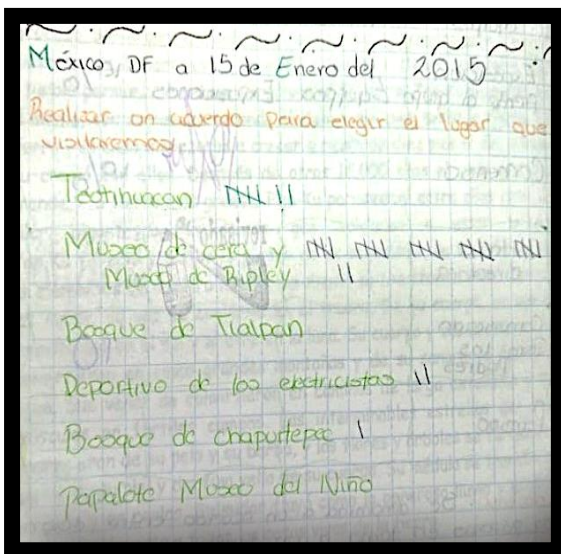 México, DF a 15 de Enero del 2015
Realizar un acuerdo para elegir el lugar que
visitaremos
Teotihuacan 𝍸 ||
Museo de cera y 𝍸 𝍸 𝍸 𝍸 𝍸
Museo de Ripley ||
Bosque de Tlalpan
Deportivo de los electricistas ||
Bosque de Chapultepec |
Papalote Museo del Niño